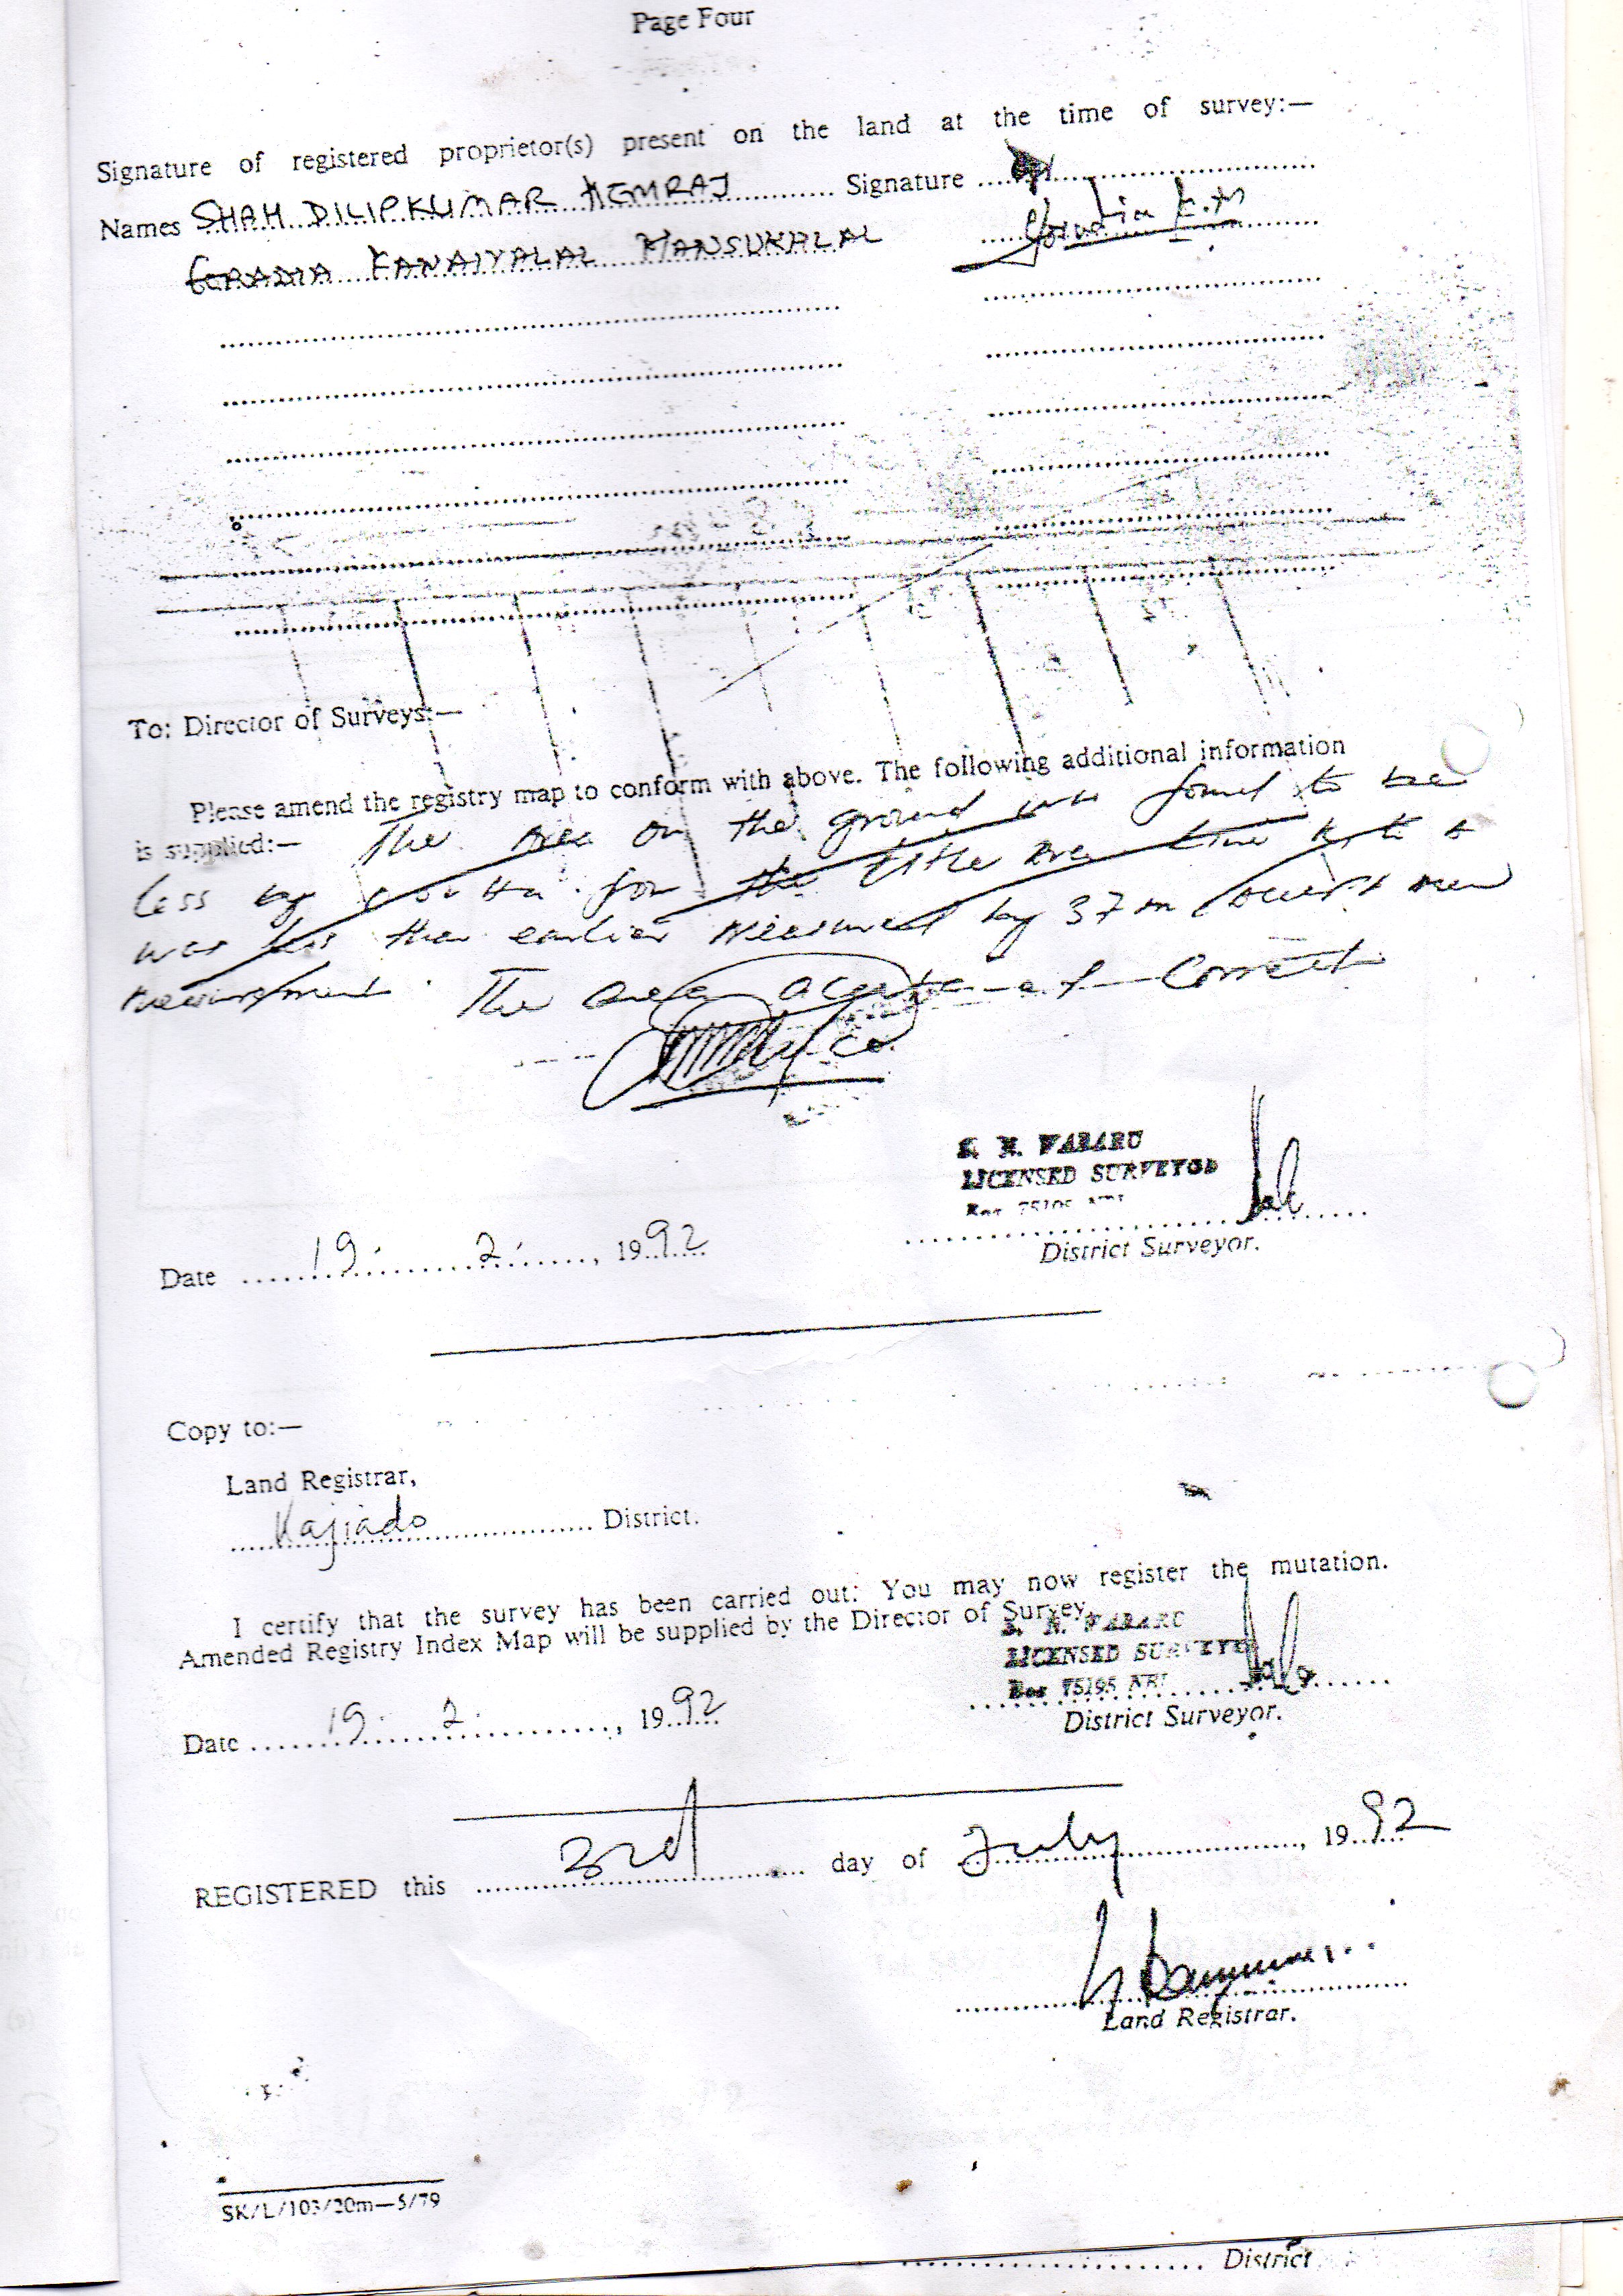 Page Four
Signature of registered proprietor(s) present on the land at the time of survey:—
Names SHAH DILIPKUMAR HEMRAJ Signature
KANAIYALAL MANSUKHLAL
To: Director of Surveys:—
Please amend the registry map to conform with above. The following additional information
is supplied:— The area on the ground was found to be
less by for the title area line
was less than earlier measured by 37m
measurement. The area Correct
LICENSED SURVEYOR
District Surveyor.
Date 19. 2. , 1992
Copy to:—
Land Registrar,
Kajiado District.
I certify that the survey has been carried out: You may now register the mutation.
Amended Registry Index Map will be supplied by the Director of Survey
LICENSED SURVEYO
Box 75195 NBI
District Surveyor.
Date 19. 2. , 1992
REGISTERED this 3rd day of July , 1992
Land Registrar.
SK/L/103/20m—5/79
District